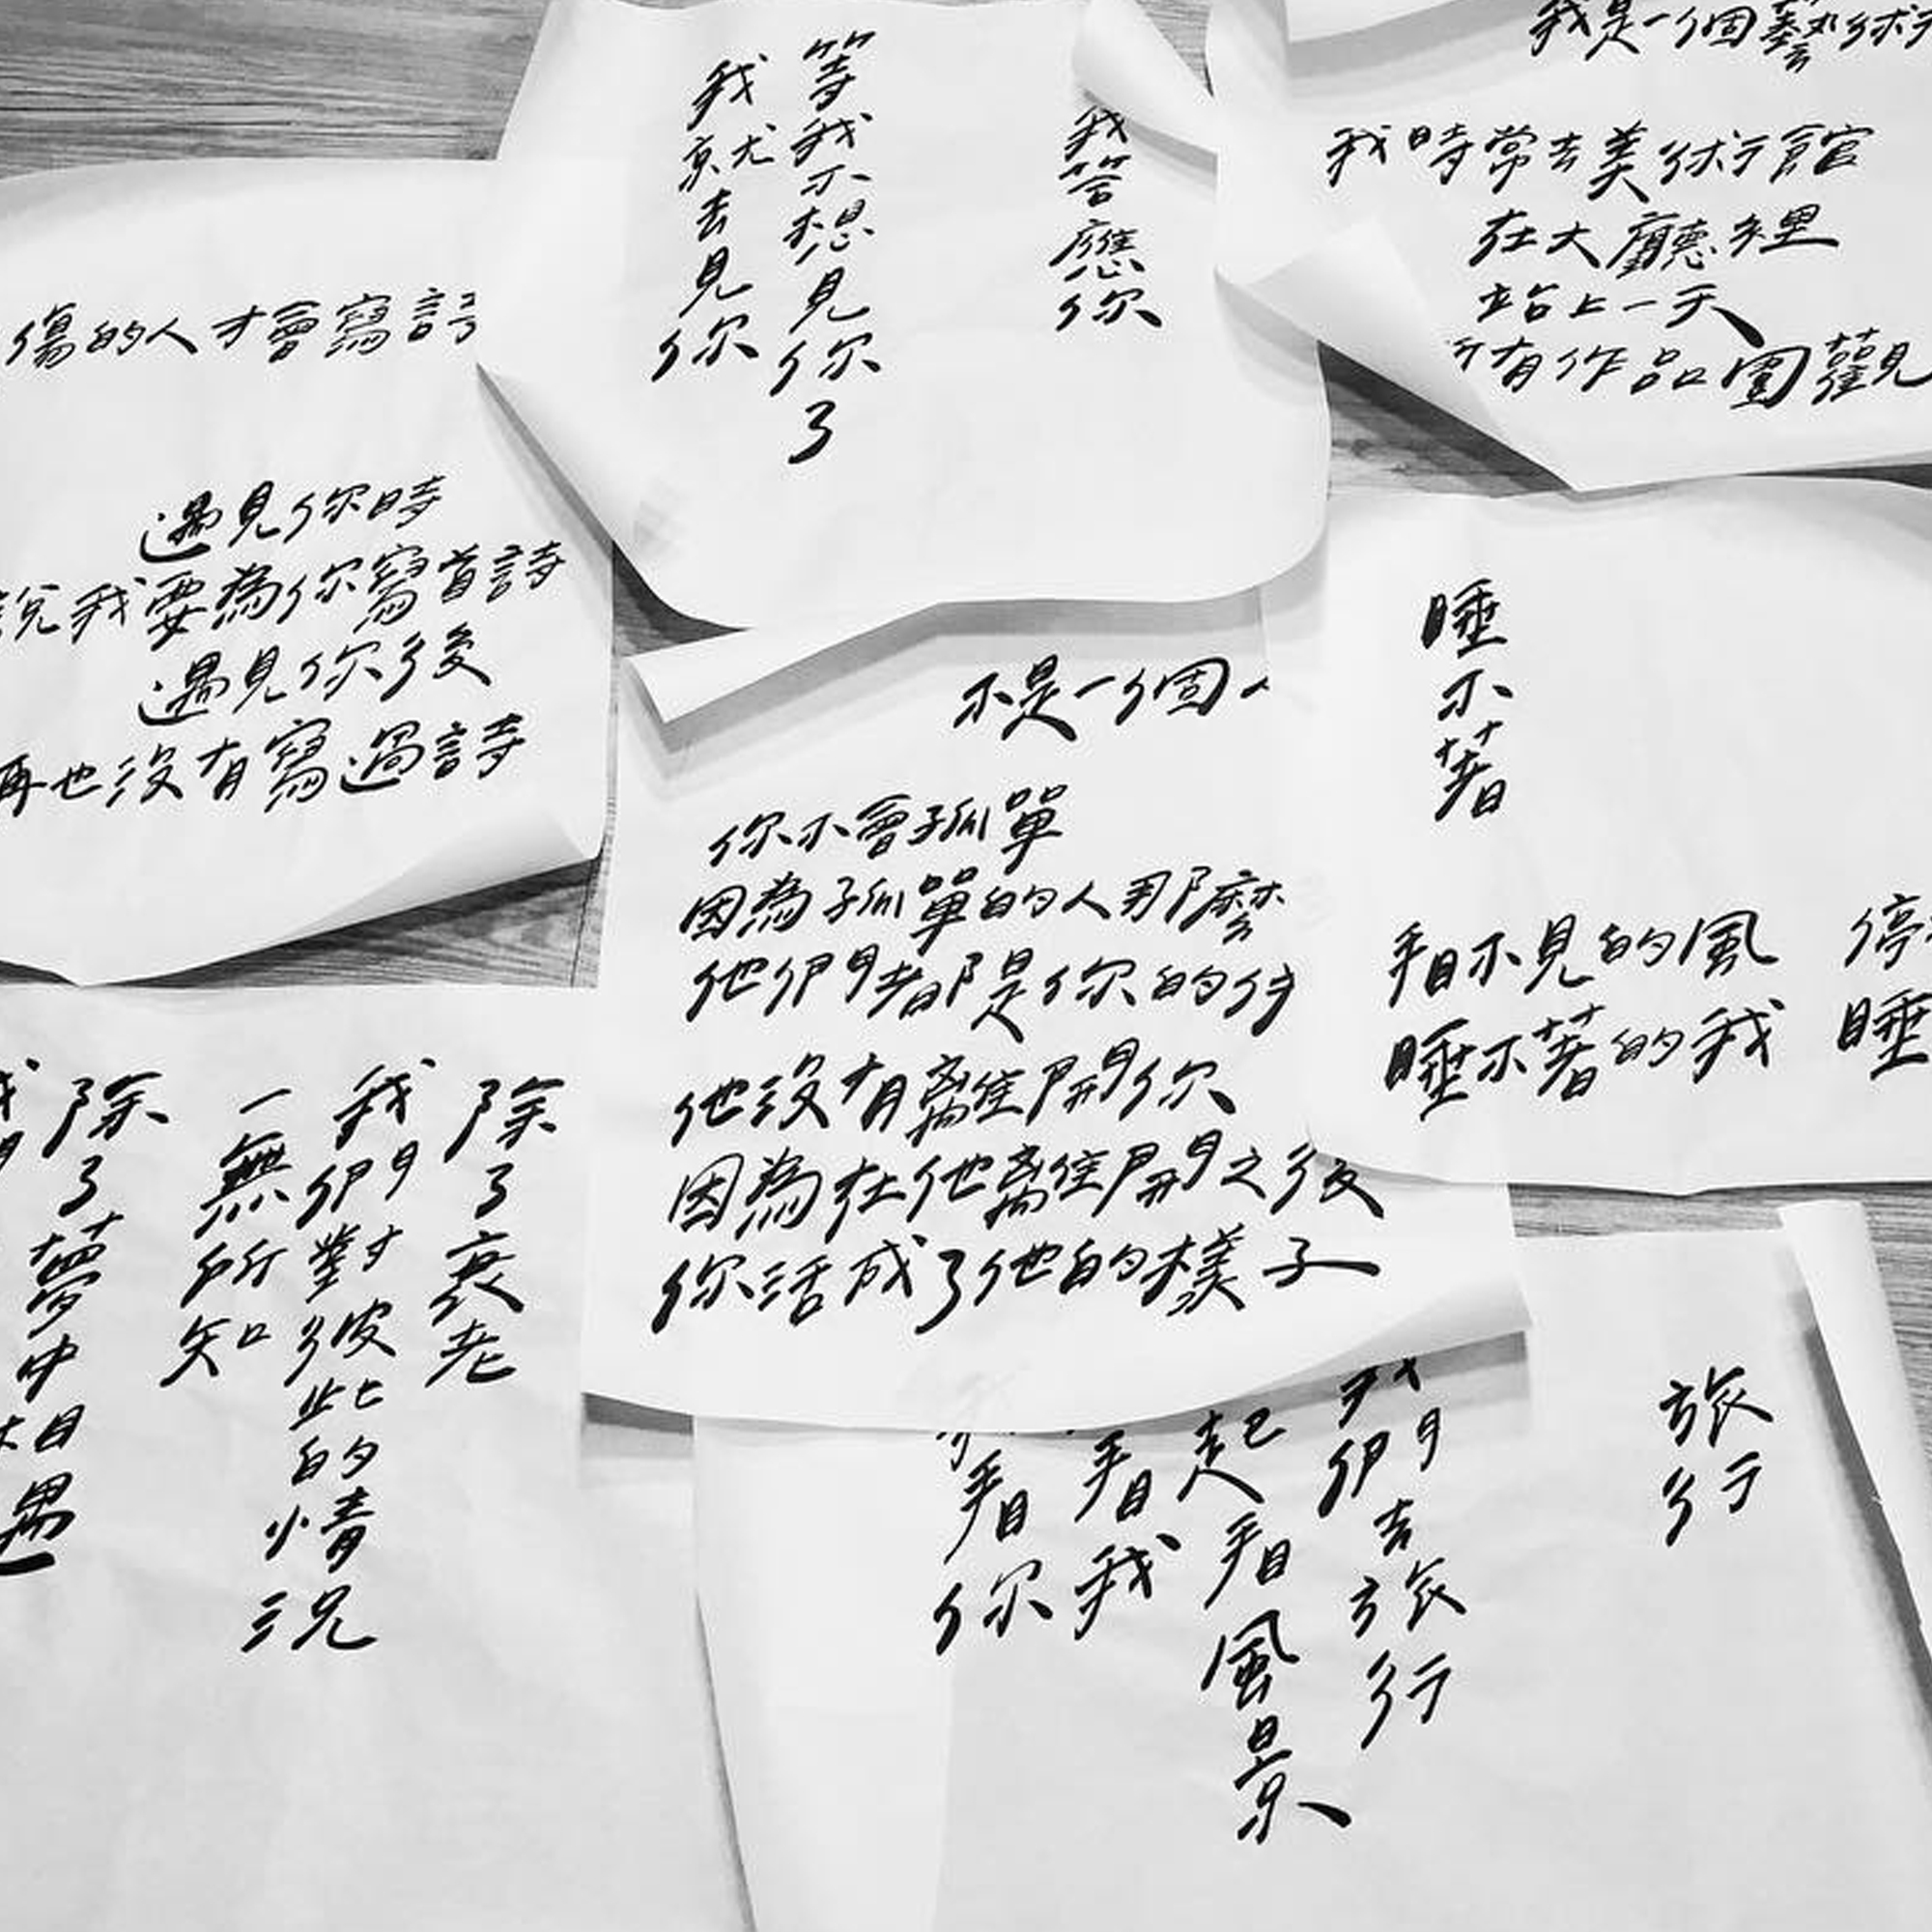 傷的人才會寫詩
遇見你時
說我要為你寫首詩
遇見你後
再也沒有寫過詩
我答應你
等我不想見你了
我就去見你
我是一個藝術
我時常去美術館
在大廳裡
站上一天
所有作品圍觀
不是一個人
你不會孤單
因為孤單的人那麼
他們都是你的伴
他沒有離開你
因為在他離開之後
你活成了他的樣子
睡不著
看不見的風 停
睡不著的我 睡
除了衰老
我們對彼此的情況
一無所知
除了夢中
我們相遇
旅行
我們去旅行
起看風景
看我
看你